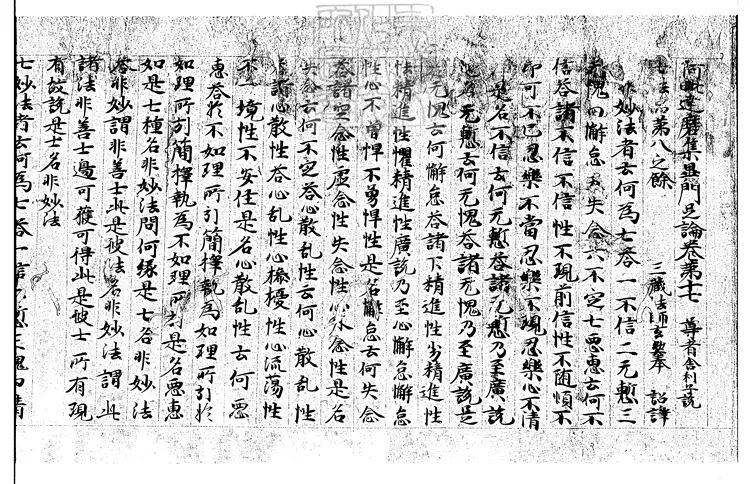 阿毗達磨集異門足論卷第十七 尊者舍利子說
七法品第八之餘 三藏法師玄奘奉 詔譯
非妙法者云何為七答一不信二无慙三
无愧四懈怠五失念六不定七惡惠云何不
信答諸不信不信性不現前信性不随慎不
印可不已忍樂不當忍樂不現忍樂心不清
是名不信云何无慙答諸无慙乃至廣說
名无慙云何无愧答諸无愧乃至廣說是
无愧云何懈怠答諸下精進性劣精進性
怯精進性懼精進性廣說乃至心懈怠懈怠
性心不曾悍不勇悍性是名懈怠云何失念
答諸空念性虛念性失念性心外念性是名
失念云何不定答心散乱性云何心散乱性
諸心散性答心乱性心擾性心流蕩性
不一境性不安住是名心散乱性云何惡
惠答於不如理所引簡擇執為如理所引於
如理所引簡擇執為不如理所引是名惡惠
如是七種名非妙法問何緣是七名非妙法
答非妙謂非善士此是彼法名非妙法謂此
諸法非善士邊可獲可得此是彼士所有現
有故說是士名非妙法
七妙法者云何為七答一信二慙三愧四精